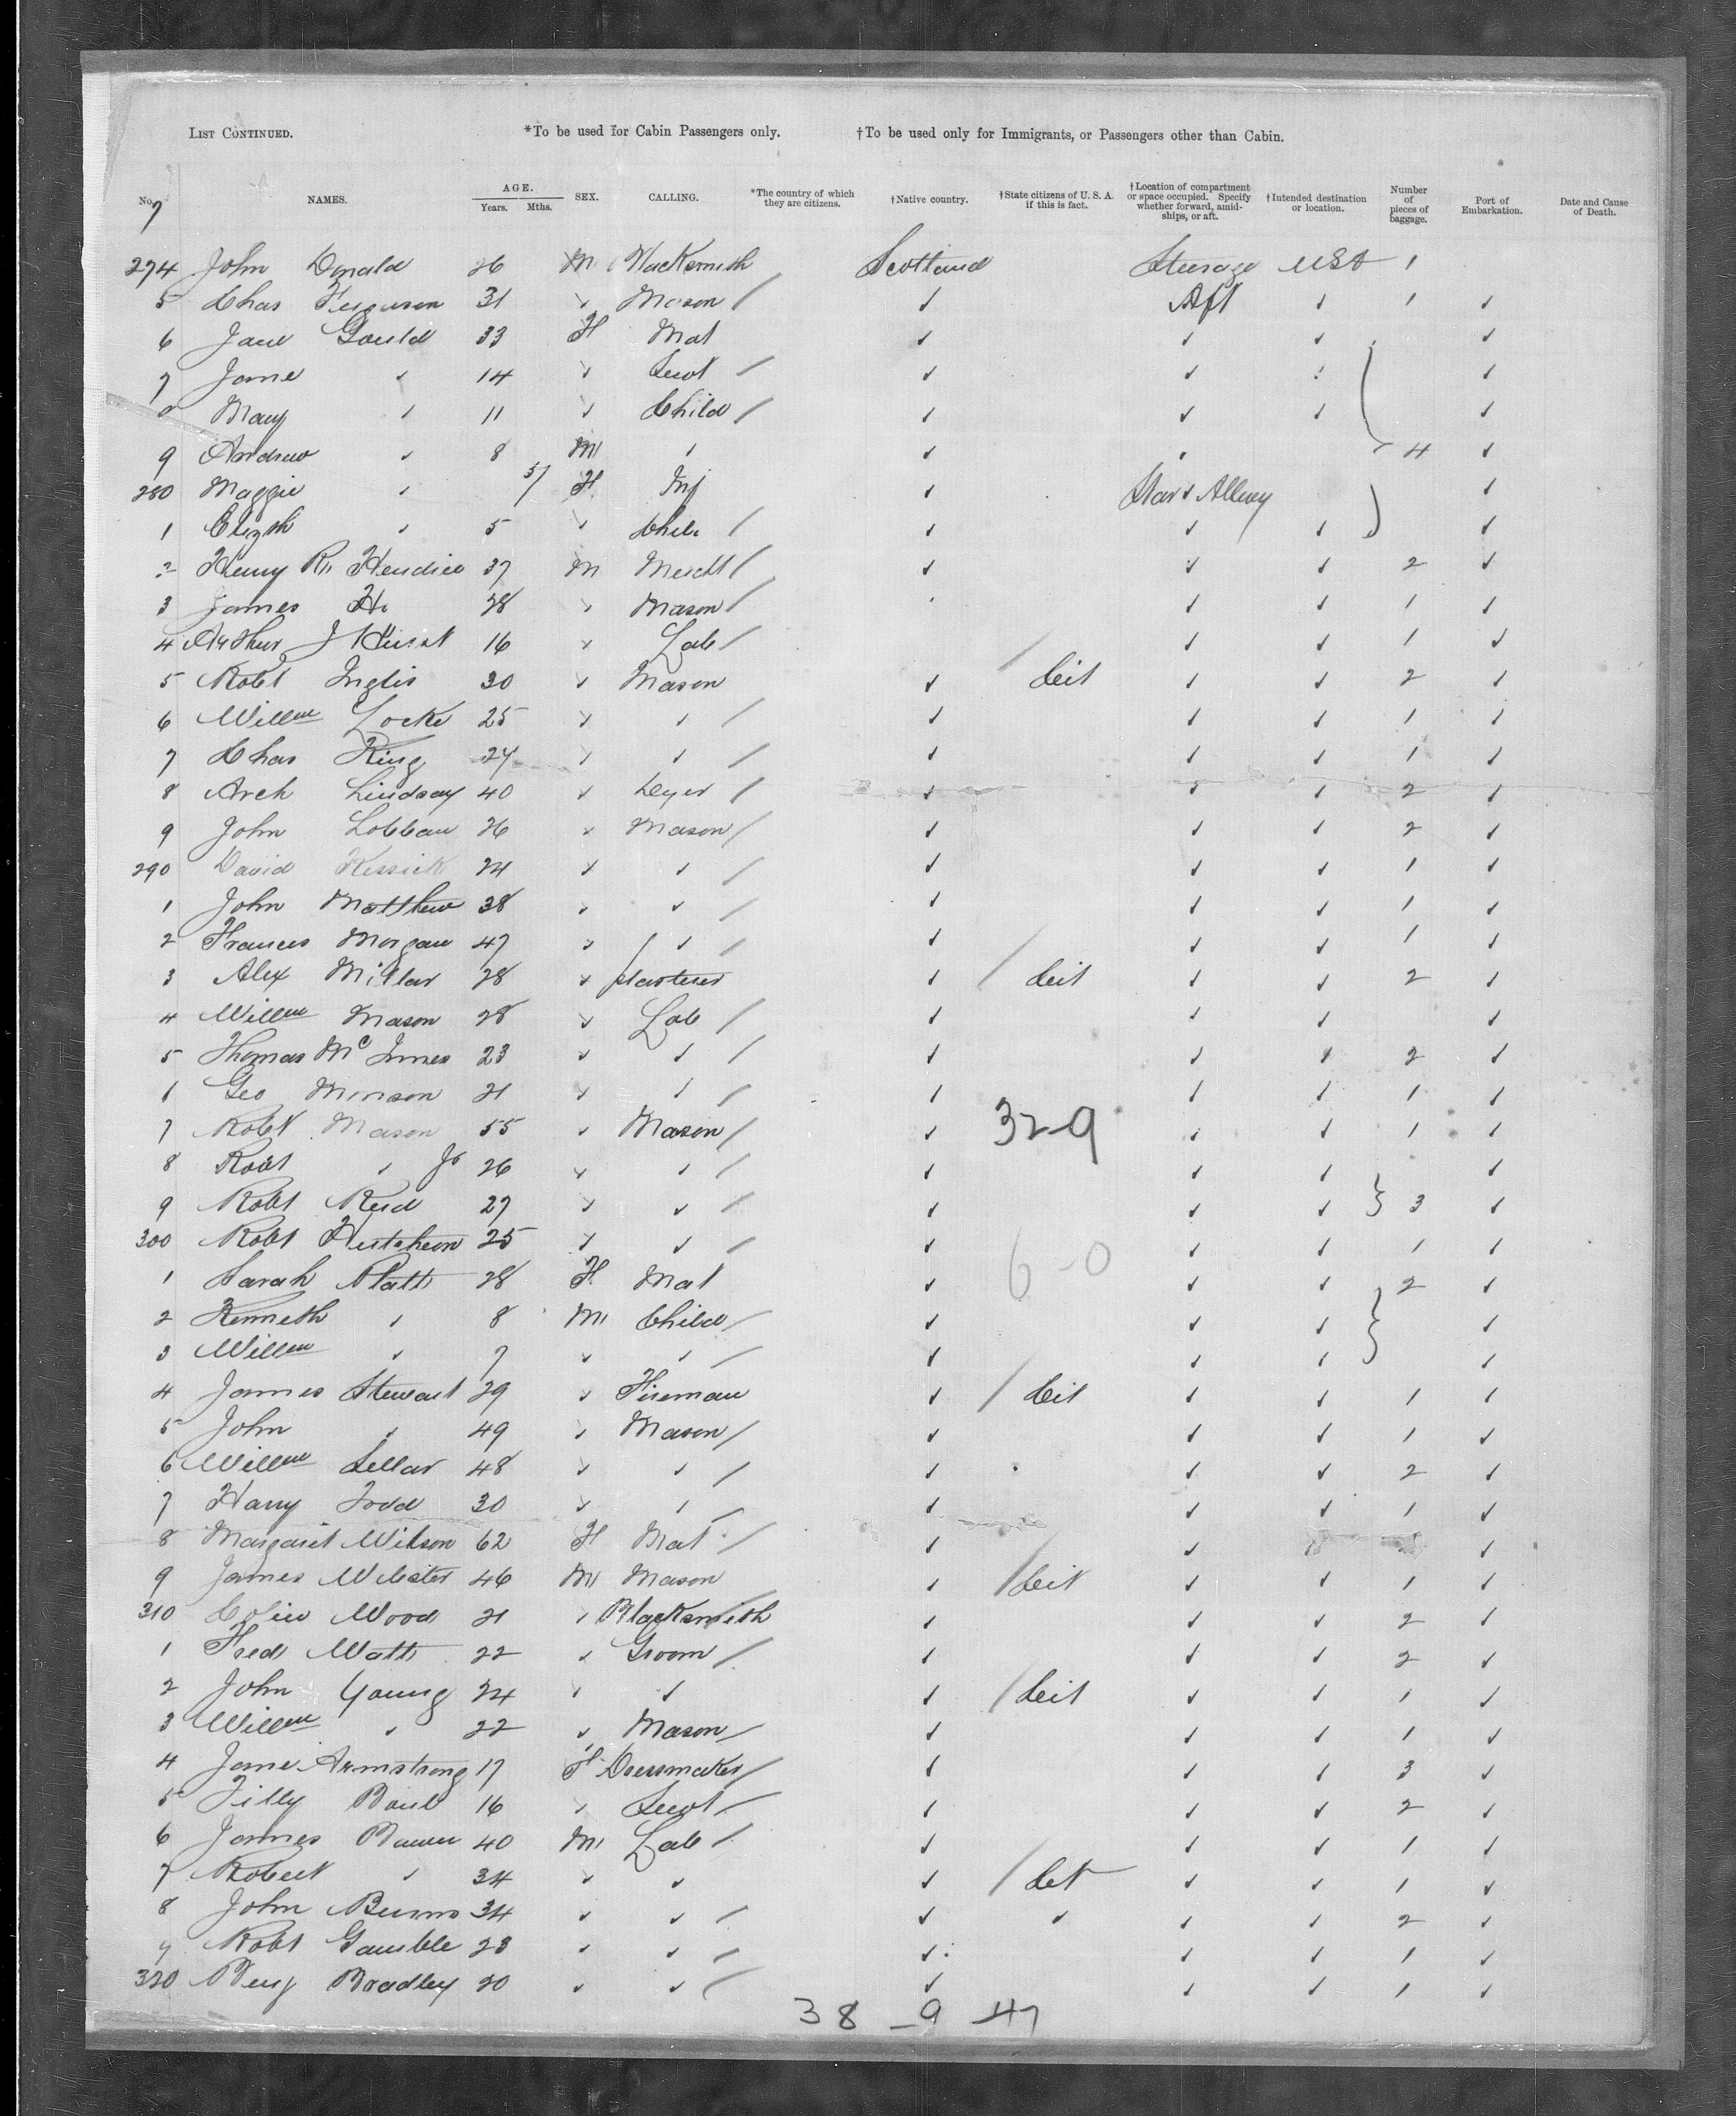 LIST CONTINUED. *To be used for Cabin Passengers only. †To be used only for Immigrants, or Passengers other than Cabin.
No. NAMES. AGE. Years. Mths. SEX. CALLING. *The country of which they are citizens. †Native country. †State citizens of U. S. A. if this is fact. †Location of compartment or space occupied. Specify whether forward, amidships, or aft. †Intended destination or location. Number of pieces of baggage. Port of Embarkation. Date and Cause of Death.
7
274 John Donald 26 M Blacksmith Scotland Steerage USA 1
5 Chas Ferguson 31 ✓ Mason / ✓ Aft ✓ 1 ✓
6 Jane Gould 33 F Mat ✓ ✓ ✓ ✓
7 Jane ✓ 14 ✓ Servt / ✓ ✓ ✓
8 Mary ✓ 11 ✓ Child / ✓ ✓ ✓ ✓
9 Andrew ✓ 8 M ✓ ✓ 4 ✓
280 Maggie ✓ F Inf ✓ ✓
1 Elizth ✓ 5 ✓ Child / ✓ ✓ ✓ ✓
2 Henry 37 M Mercht / ✓ ✓ ✓ 2 ✓
3 James 28 ✓ Mason / ✓ ✓ 1 ✓
4 Arthur J Hurst 16 ✓ Lab / / ✓ ✓ 1 ✓
5 Robt Inglis 30 ✓ Mason ✓ Cit ✓ ✓ 2 ✓
6 Willm Locke 25 ✓ ✓ / ✓ ✓ ✓ 1 ✓
7 Chas King 24 ✓ ✓ / ✓ ✓ ✓ 1 ✓
8 Arch Lindsay 40 ✓ Dyer / ✓ ✓ ✓ 2 ✓
9 John Lobban 26 ✓ Mason / ✓ ✓ ✓ 2 ✓
290 David Kessick 24 ✓ ✓ / ✓ ✓ ✓ 1 ✓
1 John Matthew 38 ✓ ✓ / ✓ ✓ ✓ 1 ✓
2 Frances Morgan 47 ✓ ✓ / ✓ ✓ ✓ 1 ✓
3 Alex Millar 28 ✓ plasterer ✓ / Cit ✓ ✓ 2 ✓
4 Willm Mason 28 ✓ Lab / ✓ ✓ ✓ ✓
5 Thomas McInnes 23 ✓ ✓ / ✓ ✓ ✓ 2 ✓
6 Geo Morrison 21 ✓ ✓ / ✓ ✓ ✓ 1 ✓
7 Robt Mason 55 ✓ Mason / ✓ 32-9 ✓ ✓ 1 ✓
8 Robt ✓ Jr 26 ✓ ✓ / ✓ ✓ ✓ ✓
9 Robt Reid 27 ✓ ✓ / ✓ ✓ ✓ } 3 ✓
300 Robt Hutcheon 25 ✓ ✓ / ✓ 6-0 ✓ ✓ 1 ✓
1 Sarah Platt 28 F Mat ✓ ✓ ✓ 2 ✓
2 Kenneth ✓ 8 M Child / ✓ ✓ ✓ } ✓
3 Willm ✓ 7 ✓ ✓ / ✓ ✓ ✓ ✓
4 James Stewart 29 ✓ Fireman ✓ / Cit ✓ ✓ 1 ✓
5 John ✓ 49 ✓ Mason / ✓ ✓ ✓ 1 ✓
6 Willm Sellar 48 ✓ ✓ / ✓ ✓ ✓ 2 ✓
7 Harry Todd 30 ✓ ✓ / ✓ ✓ ✓ 1 ✓
8 Margaret Wilson 62 F Mat / ✓ ✓ ✓
9 James Webster 46 M Mason ✓ / Cit ✓ ✓ 1 ✓
310 Colin Wood 21 ✓ Blacksmith ✓ ✓ ✓ 2 ✓
1 Fred Watt 22 ✓ Groom / ✓ ✓ ✓ 2 ✓
2 John Young 24 ✓ ✓ ✓ / Cit ✓ ✓ 1 ✓
3 Willm ✓ 22 ✓ Mason / ✓ ✓ ✓ 1 ✓
4 Jane Armstrong 17 F Dressmaker / ✓ ✓ ✓ 3 ✓
5 Tilly 16 ✓ Servt / ✓ ✓ ✓ 2 ✓
6 James 40 M Lab / ✓ ✓ ✓ 1 ✓
7 Robert ✓ 34 ✓ ✓ ✓ / Cit ✓ ✓ 1 ✓
8 John Burns 34 ✓ ✓ / ✓ ✓ ✓ ✓ 2 ✓
9 Robt Gamble 23 ✓ ✓ / ✓ ✓ ✓ 1 ✓
320 Benj Bradley 20 ✓ ✓ / ✓ ✓ ✓ 1 ✓
38 - 9 - 47